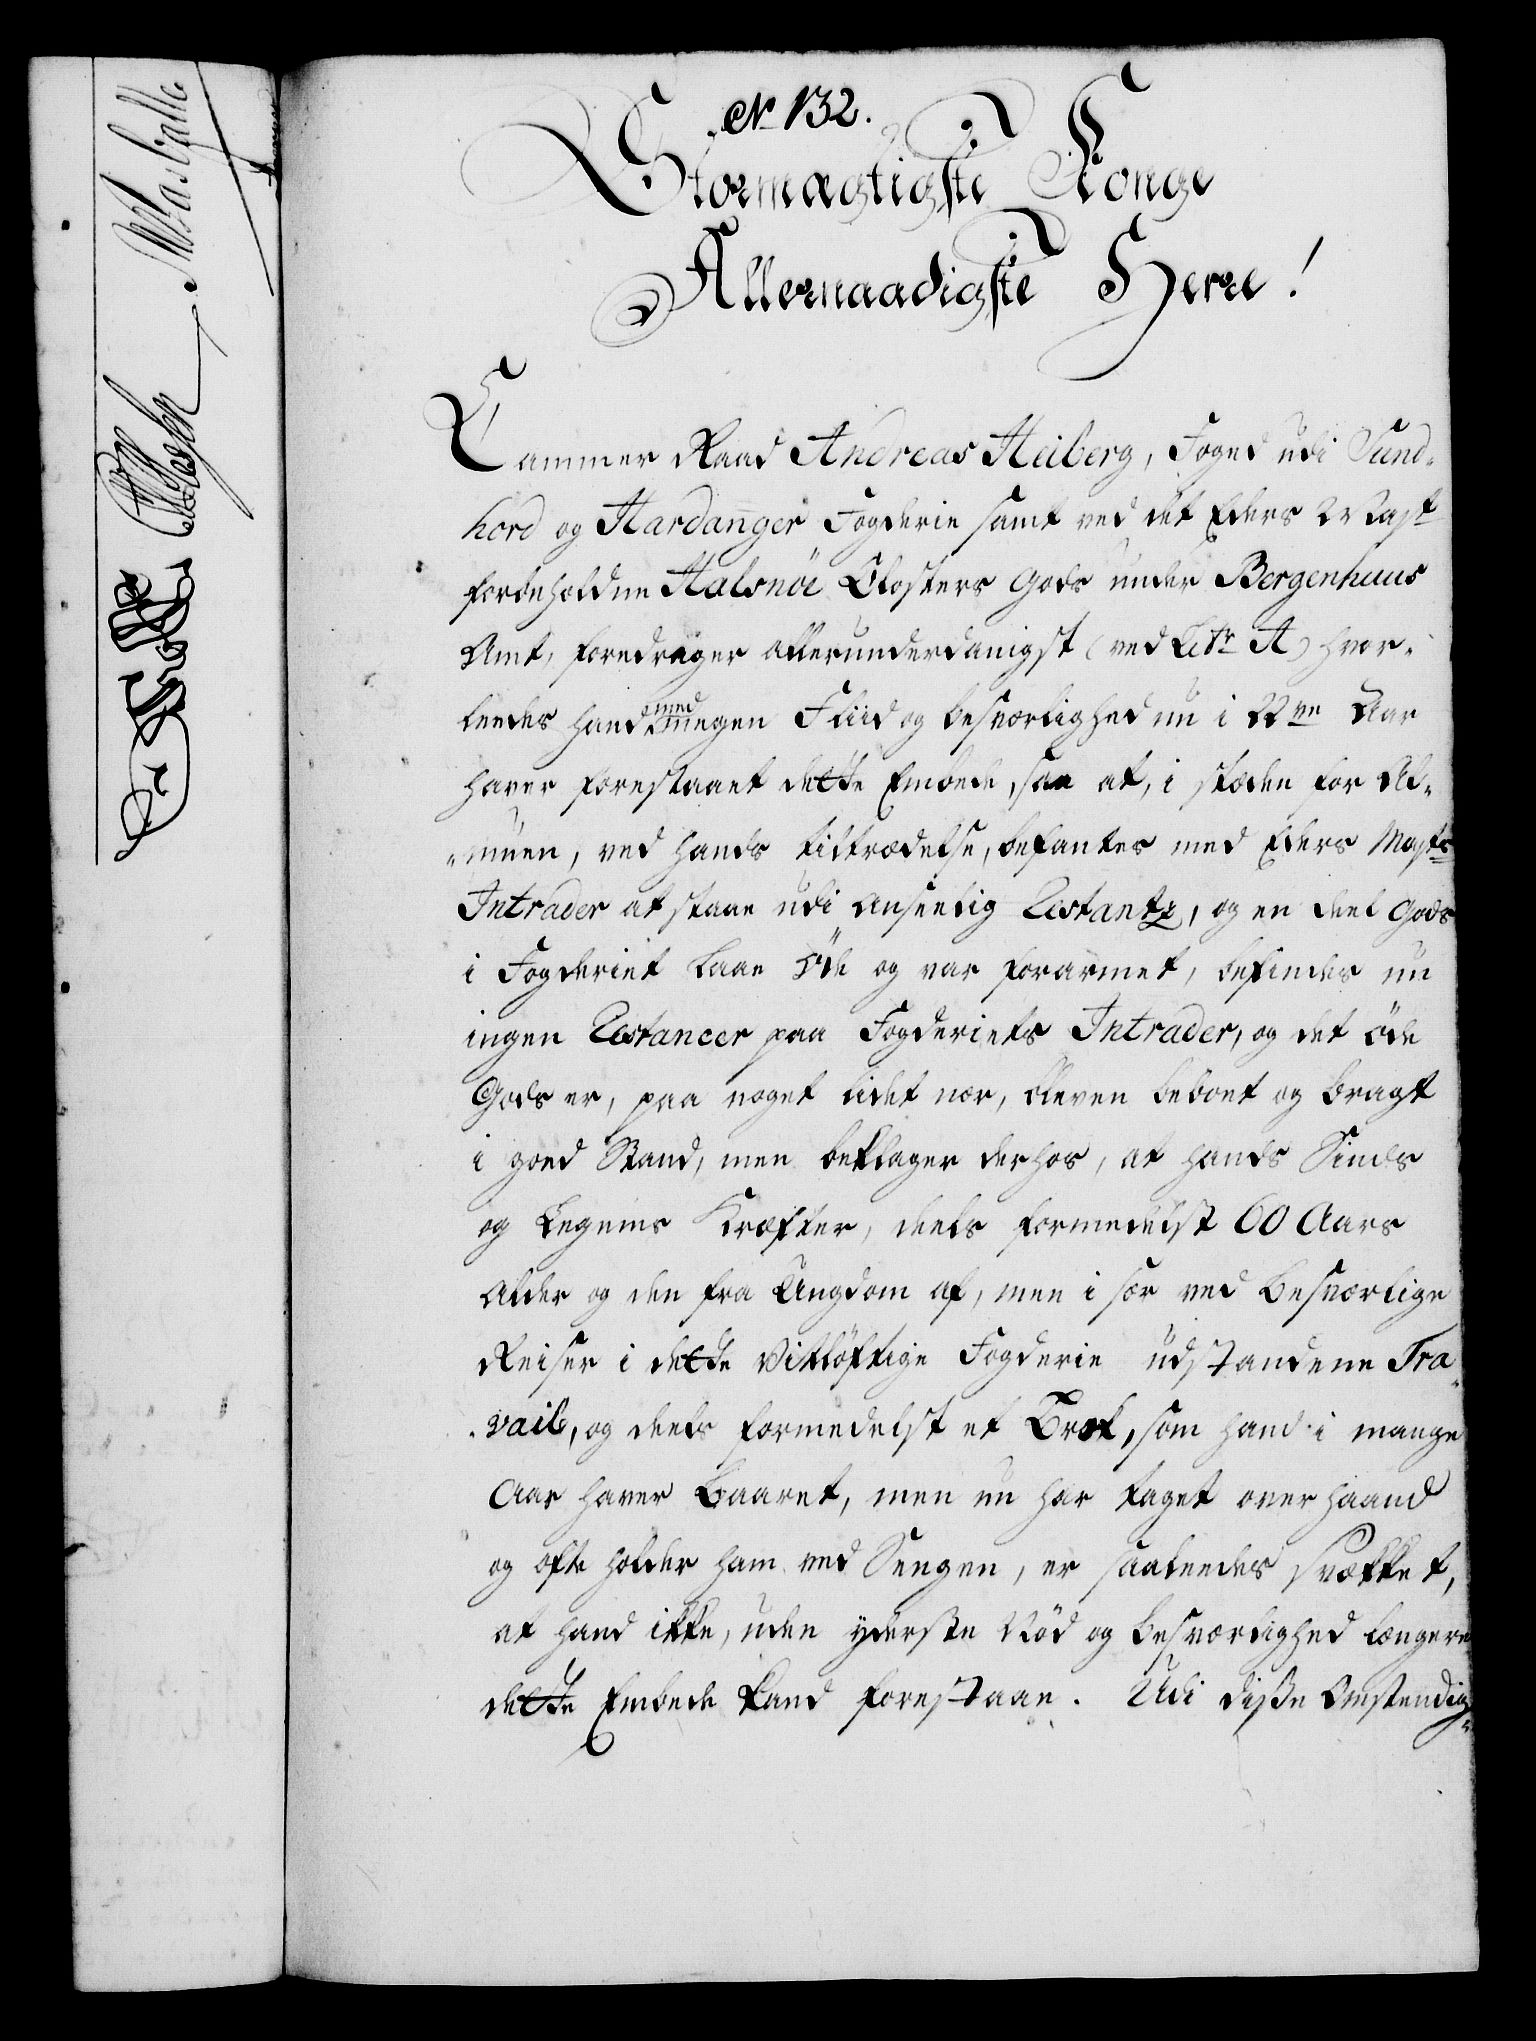 No 132.
Stormægtigste Konge
Allernaadigste Herre!
Cammer Raad Andreas Heiberg, Foged udi Sund-
hord og Hardanger Fogderie samt ved det Eders Mast
forbeholdne Halsnöe Closters Gods under Bergenhuus
Amt, foredrager allerunderdanigst (ved Litr A) hvor-
leedes hand med megen Fliid og besværlighed nu i 22ve Aar
haver forestaaet dette Embede, saa at, i stæden for Al-
muen, ved hands tiltrædelse, befantes med Eders Mayts
Intrader at staae udi anseelig Restantz, og en deel Gods
i Fogderiet laae öde og var forarmet, befindes nu
ingen Restancer paa Fogderiets Intrader, og det öde
Gods er, paa noget lidet nær, bleven beboet og bragt
i goed Stand, men beklager derhos, at hands Sinds
og Legems Kræfter, deels formedelst 60 Aars
Alder og den fra Ungdom af, men i sær ved besværlige
Reiser i dette vitlöftige Fogderie udstandene Tra-
vail, og deels formedelst et Brok, som hand i mange
Aar haver baaret, men nu har taget overhaand
og ofte holder ham ved Sengen, er saaleedes svækket,
at hand ikke, uden yderste Nöd og besværlighed længere
dette Embede kand forestaae. Udi disse Omstendig-